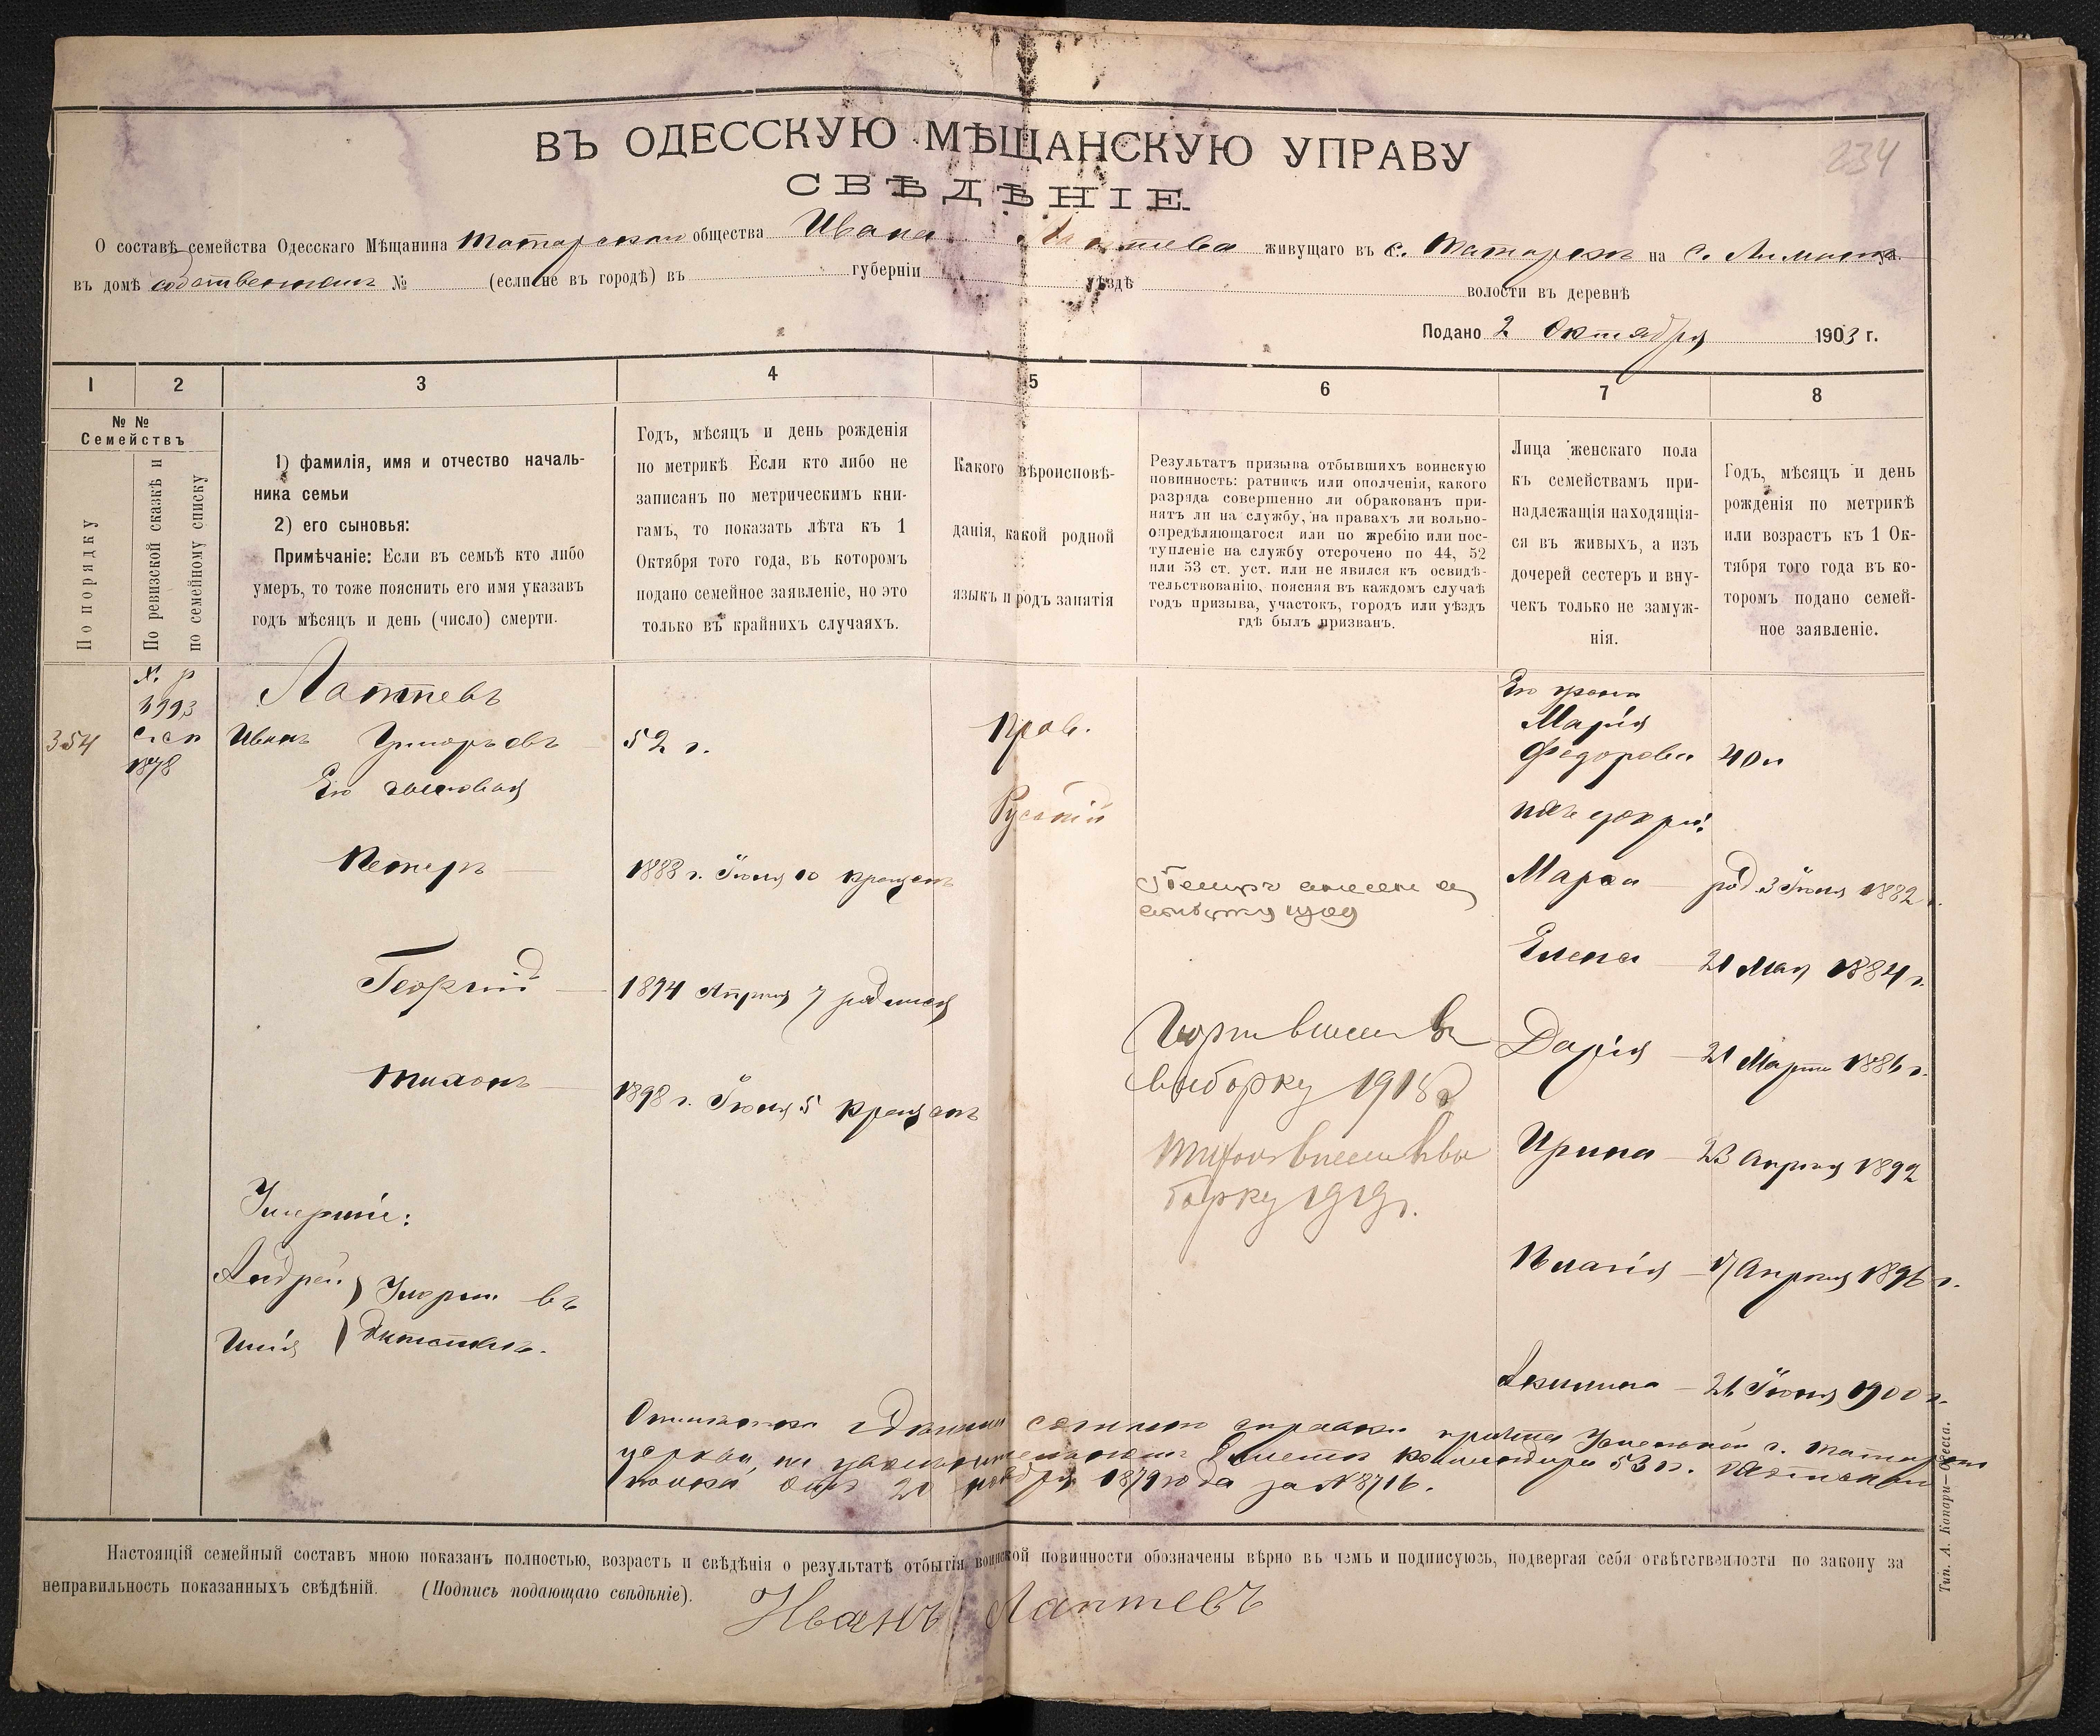 234
ВЪ ОДЕССКУЮ МѢЩАНСКУЮ УПРАВУ
СВѢДѢНІЕ
О составѣ семейства Одесскаго Мѣщанина Татарскаго общества Ивана Лаптева живущаго въ с. Татаркѣ на
въ домѣ собственномъ № (если не въ городѣ) въ губерніи уѣздѣ волости въ деревнѣ
Подано 2 Октября 1903 г.
1 2 3 4 5 6 7 8
№ №
Семействъ
По порядку
По ревизской сказкѣ и
по семейному списку
1) фамилія, имя и отчество началь-
ника семьи
2) его сыновья:
Примѣчаніе: Если въ семьѣ кто либо
умеръ, то тоже пояснить его имя указавъ
годъ мѣсяцъ и день (число) смерти.
Годъ, мѣсяцъ и день рожденія
по метрикѣ Если кто либо не
записанъ по метрическимъ кни-
гамъ, то показать лѣта къ 1
Октября того года, въ которомъ
подано семейное заявленіе, но это
только въ крайнихъ случаяхъ.
Какого вѣроисповѣ-
данія, какой родной
языкъ и родъ занятія
Результатъ призыва отбывшихъ воинскую
повинность: ратникъ или ополченія, какого
разряда совершенно ли обракованъ при-
нятъ ли на службу, на правахъ ли вольно-
опредѣляющагося или по жребію или пос-
тупленіе на службу отсрочено по 44, 52
или 53 ст. уст. или не явился къ освидѣ-
тельствованію, поясняя въ каждомъ случаѣ
годъ призыва, участокъ, городъ или уѣздъ
гдѣ былъ призванъ.
Лица женскаго пола
къ семействамъ при-
надлежащія находящія-
ся въ живыхъ, а изъ
дочерей сестеръ и вну-
чекъ только не замуж-
нія.
Годъ, мѣсяцъ и день
рожденія по метрикѣ
или возрастъ къ 1 Ок-
тября того года въ ко-
торомъ подано семей-
ное заявленіе.
Лаптевъ
354
1878
Иванъ Григорьевъ 52 г.
Прав.
Его жена
Марія
Федорова 40 л
Его сыновья
Русскій
ихъ дочри:
Петръ 1888 г. Іюня 10 крещенъ
Марѳа род. 3 Іюня 1882 г.
Елена 21 Мая 1884 г.
Георгій 1894 Апрѣля 7 родился
Георгій внесенъ въ
выборку 1915 г.
Дарія 21 Марта 1886 г.
Тихонъ 1898 г. Іюня 5 крещенъ
Тихонъ внесенъ въ вы
борку 1919 г.
Ирина 23 Апрѣля 1892
Умершіе:
Андрей
Илія
Умерли въ
дѣтствѣ.
Пелагія 17 Апрѣля 1896 г.
Акилина 26 Іюня 1900 г.
Отмѣтка сдѣлана согласно справки причта Успенской с. Татарки
церкви, на увольнительномъ билетѣ командира 53 п.
полка отъ 20 1879 года за № 8716.
Настоящій семейный составъ мною показанъ полностью, возрастъ и свѣдѣнія о результатѣ отбытія воинской повинности обозначены вѣрно въ чемъ и подписуюсь, подвергая себя отвѣтственности по закону за
неправильность показанныхъ свѣдѣній. (Подпись подающаго свѣдѣніе).
Иванъ Лаптевъ
Тип. А. Копари—Одесса.